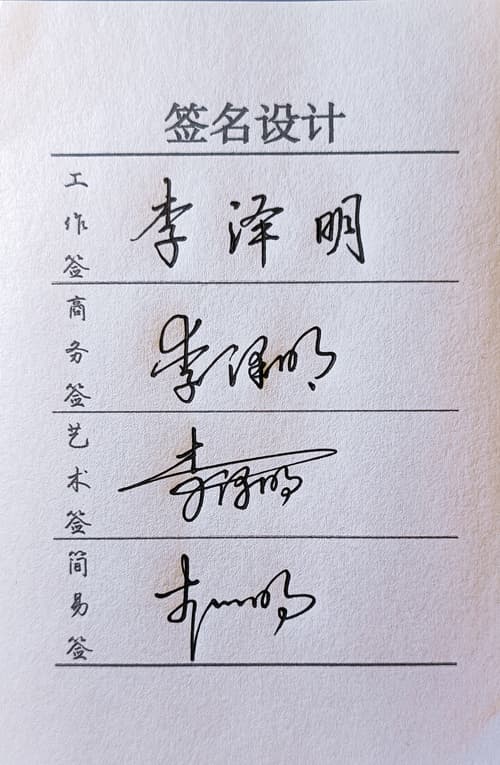 签名设计
工作签 李泽明
商务签 李泽明
艺术签 李泽明
简易签 李泽明